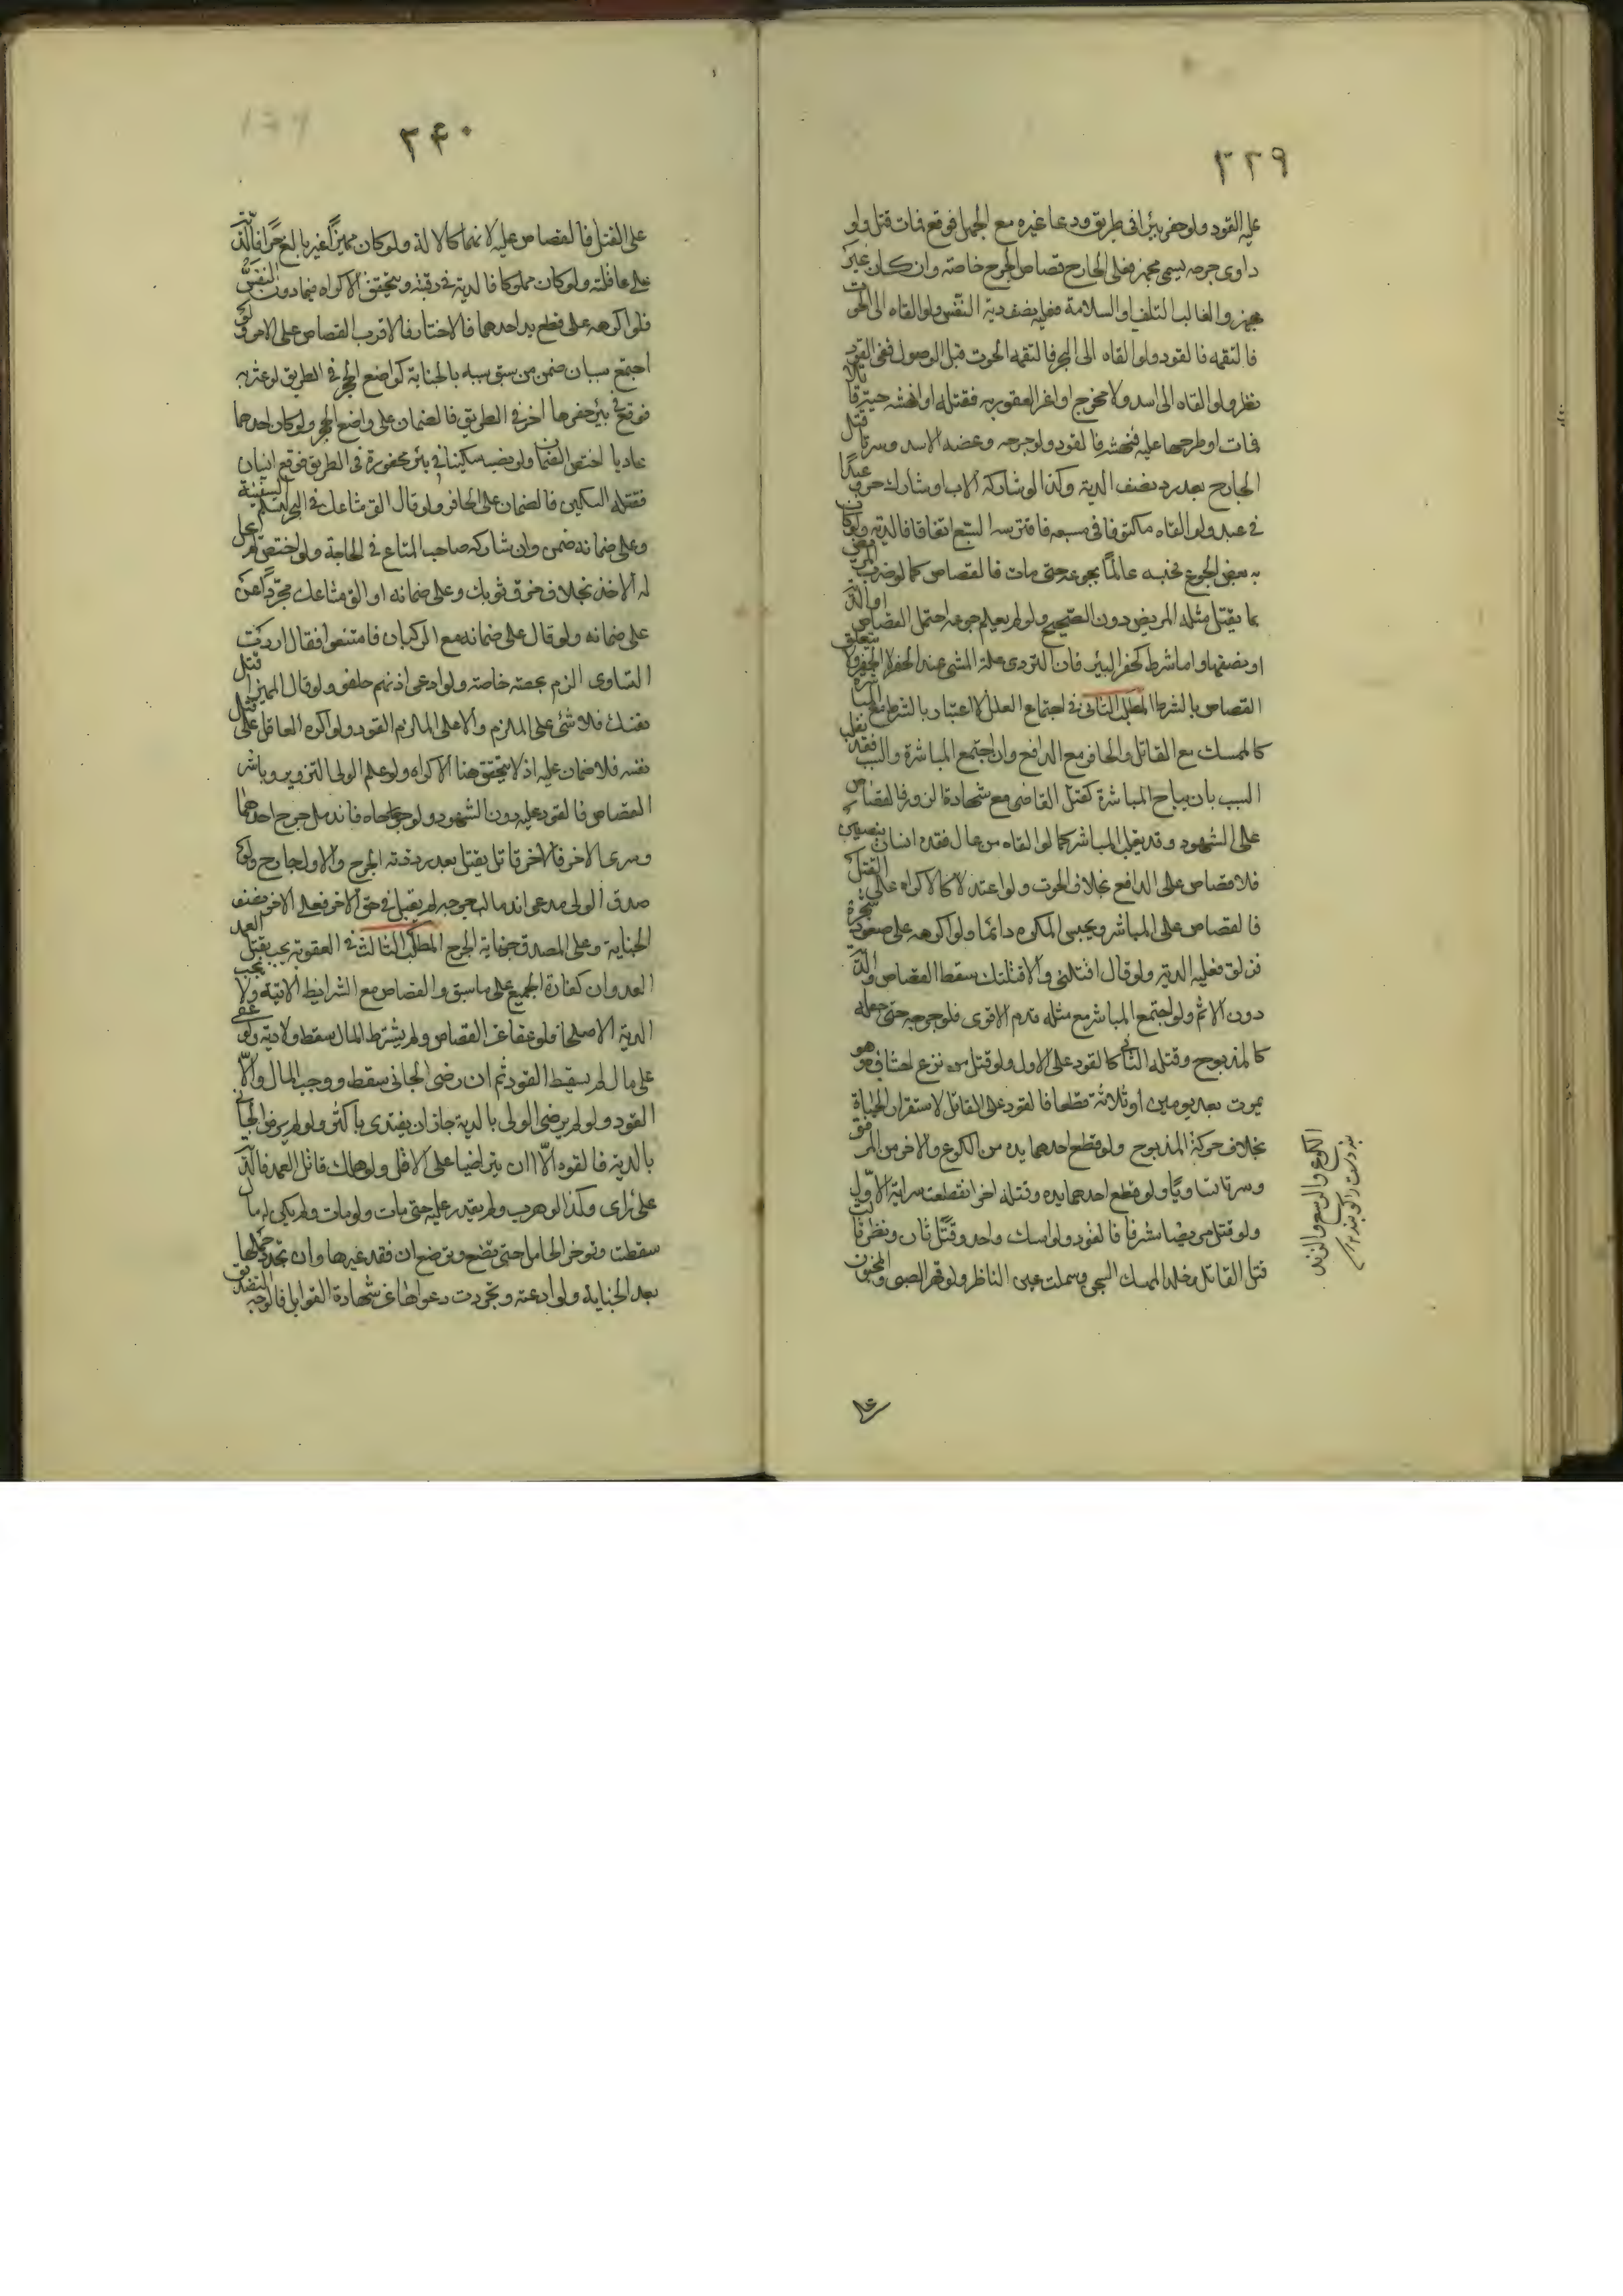 ٣٣٩
عليه القود ولو حفر بئرا فى طريق ودعا غيره مع الجهل فوقع فمات قتل ولو
داوى جرحه بسمى مجهز فعلى الجارح قصاص الجرح خاصة وان كان غير
مجهز والغالب التلف او السلامة فعليه نصف دية النفس ولو القاه الى الحوت
فالتقمه فالقود ولو القاه الى البحر فالتقمه الحوت قبل الوصول ففى القود
نظر ولو القاه الى اسد ولا مخرج او اغر العقور به فقتله او انهشه حية قاتلا
فمات او طرحها عليه فنهشه فالقود ولو جرحه وعضه الاسد وسرتا قتل
الجارح بعد رد نصف الدية وكذا لو شاركه الاب او شارك حر عبدا
فى عبد ولو القاه مكتوفا فى مسبعه فافترسه السبع اتفاقا فالدية ولو كان
به بعض الجوع فحبسه عالما بجوعه حتى مات فالقصاص كما لو ضرب المريض
بما يقتل مثله المريض دون الصحيح ولو لم يعلم جوعه احتمل القصاص او الدية
او نصفها واما شرط كحفر البئر فان التردى علة المشى عند الحفر لا الحفر ولا يتعلق
القصاص بالشرط المطلب الثانى فى اجتماع العلل لا اعتبار بالشرط مع المباشرة
كالممسك مع القاتل والحافر مع الدافع وان اجتمع المباشرة والسبب فقد يغلب
السبب بان يباح المباشرة كقتل القاضى مع شهادة الزور فالقصاص
على الشهود وقد يغلب المباشر كما لو القاه من عال فقده انسان بنصفين
فلا قصاص على الدافع بخلاف الحوت ولو اعتدلا كالاكراه على القتل
فالقصاص على المباشر ويحبس المكره دائما ولو اكرهه على صعود شجرة
فزلق فعليه الدية ولو قال اقتلنى والا قتلتك سقط القصاص والدية
دون الاثم ولو اجتمع المباشر مع مثله قدم الاقوى فلو جرحه حتى جعله
كالمذبوح وقتله الثانى فالقود على الاول ولو قتل من نزع احشاؤه وهو
يموت بعد يومين او ثلاثة قطعا فالقود على القاتل لاستقرار الحياة
بخلاف حركة المذبوح ولو قطع احدهما يده من الكوع والاخر من المرفق
وسرتا تساويا ولو قطع احدهما يده وقتله اخر انقطعت سراية الاول
ولو قتل مريضا مشرفا فالقود ولو امسك واحد وقتل ثان ونظر ثالث
قتل القاتل وخلد الممسك السجن وسملت عين الناظر ولو قهر الصبى والمجنون
الكوع والرسغ والزند
بند دست را گویند
على
٣٤٠
على القتل فالقصاص عليه لانهما كالالة ولو كان مميزا غير بالغ حرا فالدية
على عاقلته ولو كان مملوكا فالدية فى رقبته ويتحقق الاكراه فيما دون النفس
فلو اكرهه على قطع يد احدهما فالاختار فالاقرب القصاص على الامر ولو
اجتمع سببان ضمن من سبق سببه بالجناية كواضع الحجر فى الطريق لو عثر به
فوقع فى بئر حفرها اخر فى الطريق فالضمان على واضع الحجر ولو كان احدهما
عاديا اختص الضمان ولو نصب سكينا فى بئر محفورة فى الطريق فوقع انسان
فقتله السكين فالضمان على الحافر ولو قال الق متاعك فى البحر لتسلم السفينة
وعلى ضمانه ضمن وان شاركه صاحب المتاع فى الحاجة ولو اختص لم يحل
له الاخذ بخلاف خرق ثوبك وعلى ضمانه او الق متاعك مجردا عن
على ضمانه ولو قال على ضمانه مع الركبان فامتنعوا فقال اردت
التساوى الزم بحصته خاصة ولو ادعى اذنهم حلفوا ولو قال المميز اقتل
نفسك فلا شئ على الملزم والا على الملزم القود ولو اكره العاقل على قتل
نفسه فلا ضمان عليه اذ لا يتحقق هنا الاكراه ولو علم الولى التزوير وباشر
القصاص فالقود عليه دون الشهود ولو جرحاه فاندمل جرح احدهما
وسرى الاخر فالاخر قاتل يقتل بعد رد دية الجرح والاول جارح ولو
صدق الولى مدعى اندمال جرحه لم يقبل فى حق الاخر فعلى الاخر نصف
الجناية وعلى المصدق جناية الجرح المطلب الثالث فى العقوبة يجب بقتل العمد
العدوان كفارة الجمع على ما سبق والقصاص مع الشرايط الاتية ولا يجب
الدية الا صلحا فلو عفا عن القصاص ولم يشترط المال سقط ولا دية ولو عفى
على مال لم يسقط القود ثم ان رضى الجانى سقط ووجب المال والا
القود ولو لم يرضى الولى بالدية جاز ان يفتدى باكثر ولو لم يرض الجانى
بالدية فالقود الا ان يتراضيا على الاقل ولو هلك قاتل العمد فالدية
على راى وكذا لو هرب ولم يقدر عليه حتى مات ولو مات ولم يكن له مال
سقطت وتؤخر الحامل حتى تضع وترضع ان فقد غيرها وان تجدد حملها
بعد الجناية ولو ادعته وتجردت دعواها عن شهادة القوابل فالوجه التصديق